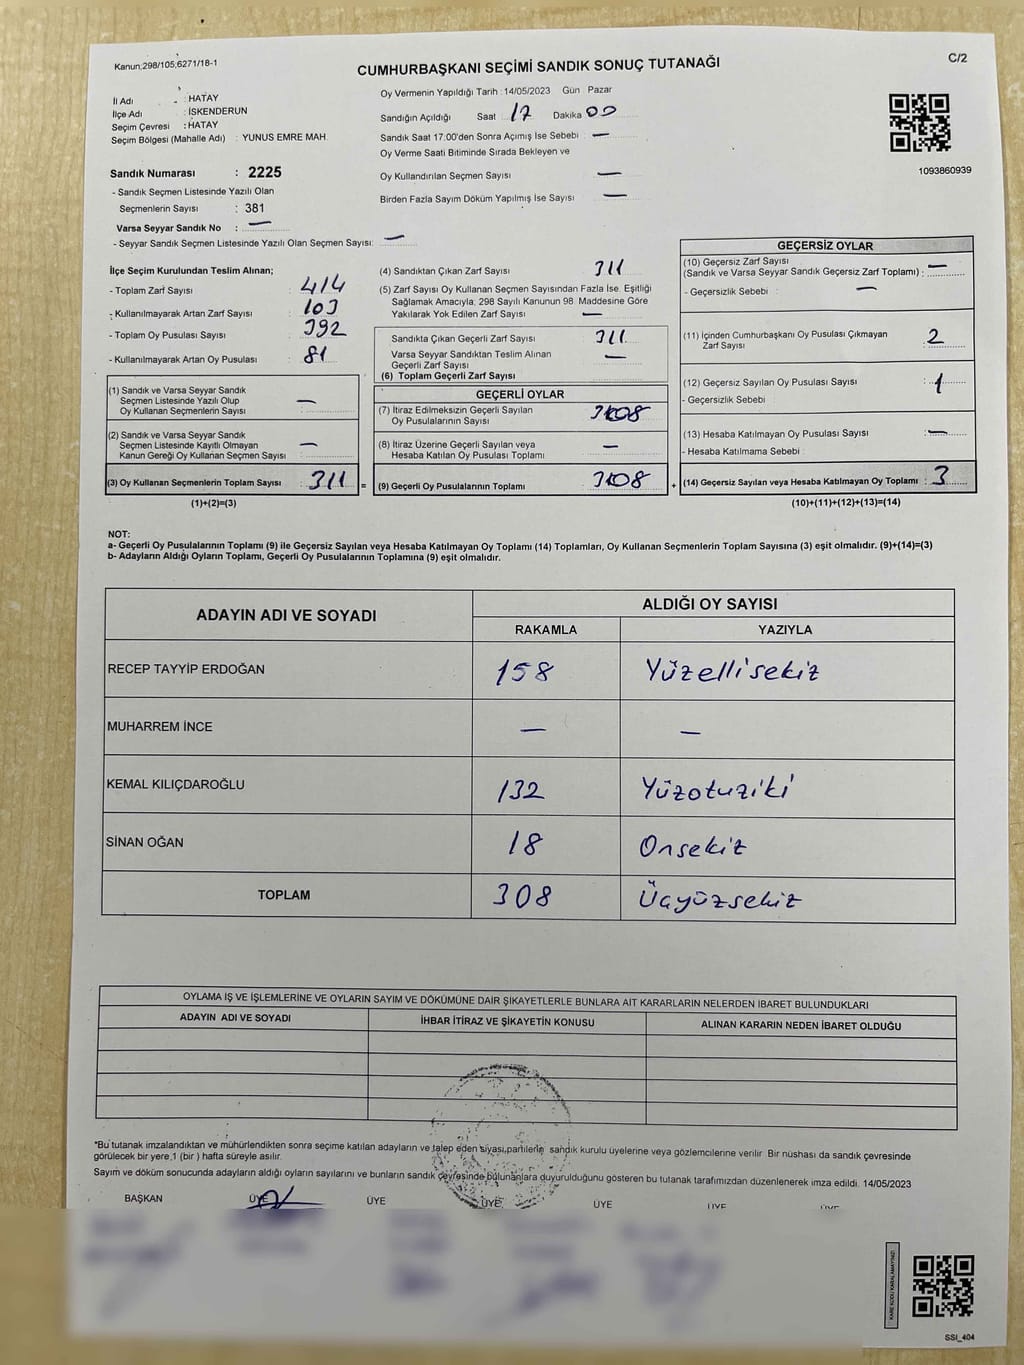 Kanun;298/105;6271/18-1
CUMHURBAŞKANI SEÇİMİ SANDIK SONUÇ TUTANAĞI
C/2
İl Adı : HATAY
İlçe Adı : İSKENDERUN
Seçim Çevresi : HATAY
Seçim Bölgesi (Mahalle Adı) : YUNUS EMRE MAH.
Sandık Numarası : 2225
- Sandık Seçmen Listesinde Yazılı Olan
Seçmenlerin Sayısı : 381
Varsa Seyyar Sandık No : —
- Seyyar Sandık Seçmen Listesinde Yazılı Olan Seçmen Sayısı: —
Oy Vermenin Yapıldığı Tarih : 14/05/2023 Gün Pazar
Sandığın Açıldığı Saat 17 Dakika 00
Sandık Saat 17:00'den Sonra Açımış İse Sebebi : —
Oy Verme Saati Bitiminde Sırada Bekleyen ve
Oy Kullandırılan Seçmen Sayısı —
Birden Fazla Sayım Döküm Yapılmış İse Sayısı : —
1093860939
İlçe Seçim Kurulundan Teslim Alınan;
- Toplam Zarf Sayısı : 414
- Kullanılmayarak Artan Zarf Sayısı : 103
- Toplam Oy Pusulası Sayısı : 392
- Kullanılmayarak Artan Oy Pusulası : 81
(1) Sandık ve Varsa Seyyar Sandık
Seçmen Listesinde Yazılı Olup
Oy Kullanan Seçmenlerin Sayısı : —
(2) Sandık ve Varsa Seyyar Sandık
Seçmen Listesinde Kayıtlı Olmayan
Kanun Gereği Oy Kullanan Seçmen Sayısı : —
(3) Oy Kullanan Seçmenlerin Toplam Sayısı : 311 =
(1)+(2)=(3)
(4) Sandıktan Çıkan Zarf Sayısı 311
(5) Zarf Sayısı Oy Kullanan Seçmen Sayısından Fazla İse, Eşitliği
Sağlamak Amacıyla; 298 Sayılı Kanunun 98. Maddesine Göre
Yakılarak Yok Edilen Zarf Sayısı : —
Sandıkta Çıkan Geçerli Zarf Sayısı : 311
Varsa Seyyar Sandıktan Teslim Alınan
Geçerli Zarf Sayısı : —
(6) Toplam Geçerli Zarf Sayısı
GEÇERLİ OYLAR
(7) İtiraz Edilmeksizin Geçerli Sayılan
Oy Pusulalarının Sayısı 308
(8) İtiraz Üzerine Geçerli Sayılan veya
Hesaba Katılan Oy Pusulası Toplamı : —
(9) Geçerli Oy Pusulalarının Toplamı 308 +
GEÇERSİZ OYLAR
(10) Geçersiz Zarf Sayısı
(Sandık ve Varsa Seyyar Sandık Geçersiz Zarf Toplamı) : —
- Geçersizlik Sebebi : —
(11) İçinden Cumhurbaşkanı Oy Pusulası Çıkmayan
Zarf Sayısı : 2
(12) Geçersiz Sayılan Oy Pusulası Sayısı : 1
- Geçersizlik Sebebi
(13) Hesaba Katılmayan Oy Pusulası Sayısı : —
- Hesaba Katılmama Sebebi :
(14) Geçersiz Sayılan veya Hesaba Katılmayan Oy Toplamı : 3
(10)+(11)+(12)+(13)=(14)
NOT:
a- Geçerli Oy Pusulalarının Toplamı (9) ile Geçersiz Sayılan veya Hesaba Katılmayan Oy Toplamı (14) Toplamları, Oy Kullanan Seçmenlerin Toplam Sayısına (3) eşit olmalıdır. (9)+(14)=(3)
b- Adayların Aldığı Oyların Toplamı, Geçerli Oy Pusulalarının Toplamına (9) eşit olmalıdır.
ADAYIN ADI VE SOYADI ALDIĞI OY SAYISI
RAKAMLA YAZIYLA
RECEP TAYYİP ERDOĞAN 158 Yüzellisekiz
MUHARREM İNCE — —
KEMAL KILIÇDAROĞLU 132 Yüzotuziki
SİNAN OĞAN 18 Onsekiz
TOPLAM 308 Üçyüzsekiz
OYLAMA İŞ VE İŞLEMLERİNE VE OYLARIN SAYIM VE DÖKÜMÜNE DAİR ŞİKAYETLERLE BUNLARA AİT KARARLARIN NELERDEN İBARET BULUNDUKLARI
ADAYIN ADI VE SOYADI İHBAR İTİRAZ VE ŞİKAYETİN KONUSU ALINAN KARARIN NEDEN İBARET OLDUĞU
*Bu tutanak imzalandıktan ve mühürlendikten sonra seçime katılan adayların ve talep eden siyasi partilerin sandık kurulu üyelerine veya gözlemcilerine verilir. Bir nüshası da sandık çevresinde
görülecek bir yere,1 (bir ) hafta süreyle asılır.
Sayım ve döküm sonucunda adayların aldığı oyların sayılarını ve bunların sandık çevresinde bulunanlara duyurulduğunu gösteren bu tutanak tarafımızdan düzenlenerek imza edildi. 14/05/2023
BAŞKAN ÜYE ÜYE ÜYE ÜYE ÜYE ÜYE
KARE KODU KARALAMAYINIZ!
SSİ_404